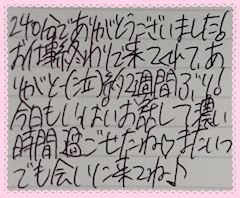 240分でありがとうございました!
お仕事終わりに来てくれて、あ
りがと(泣)約2週間ぶり!
今日もいっぱいお話して濃い
時間過ごせたね またいつ
でも会いに来てね♪